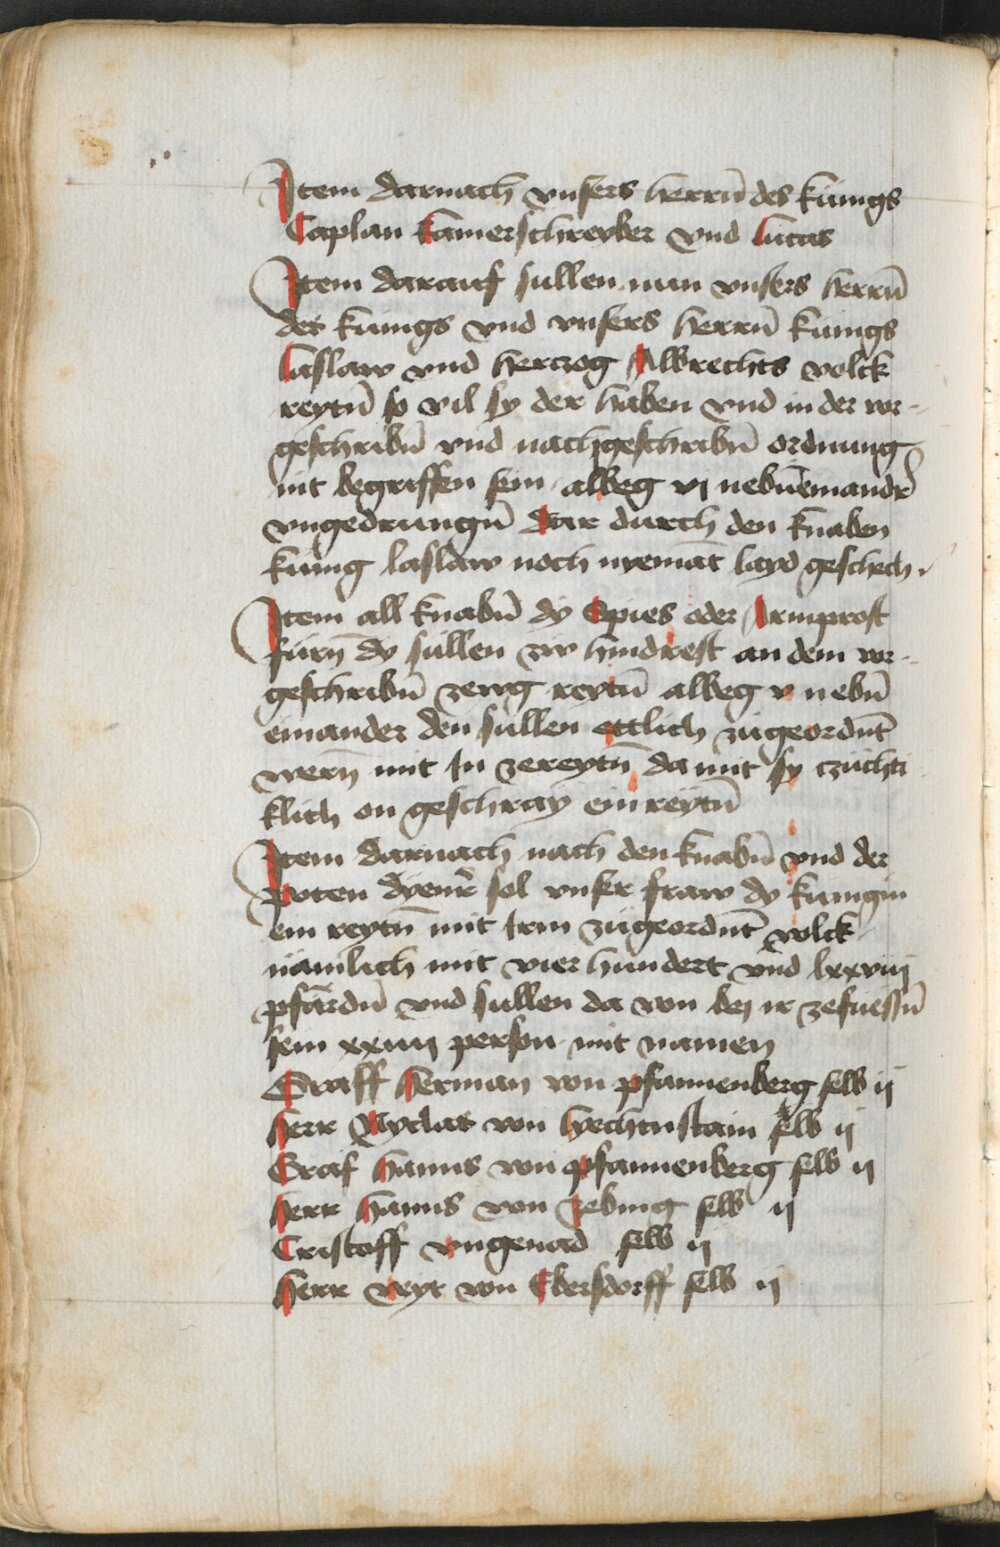 Item darnach vnsers herrn̄ des kunigs
Caplan kamerschreyber vnd lucas
Item darauf sullen nun vnsers herrn̄
des kunigs vnd vnsers herrn̄ kunigs
laslaw vnd herczog Albrechts volck
reytn̄ so vil sy der haben vnd in der vor-
geschribn̄ vnd nachgeschribn̄ ordnung
nit begriffen sein albeg vj nebn̄einandr̄
vngedrungn̄ dar durch den knaben
kunig laslaw noch nyemāt layd geschech.
Item all knabn̄ dy Spies oder Armprost
furn̄ dy sullen zw hindrest an dem vor-
geschribn̄ zewg reytn̄ albeg v nebn̄
einander den sullen ettlich zugeordnt̄
wern̄ mit In zereytn̄ da mit sy czuchti
klich on geschray ein reytn̄
Item darnach nach den knabn̄ vnd der
poten dyenr̄ sol vnser fraw dy kunigin
ein reytn̄ mit irm zugeordnt̄ volck
namlich mit vier hundert vnd lxxviij
pfardn̄ vnd sullen da von bej ir zefuessn̄
sein xxiiij person mit namen
Graff Herman von pfannenberg selb ij
Herr Nyclas von lyechtnstain selb ij
Graf Hanns von pfannenberg selb ij
Herr Hanns von zebing selb ij
Cristoff vngenad selb ij
Herr veyt von Ebersdorff selb ij